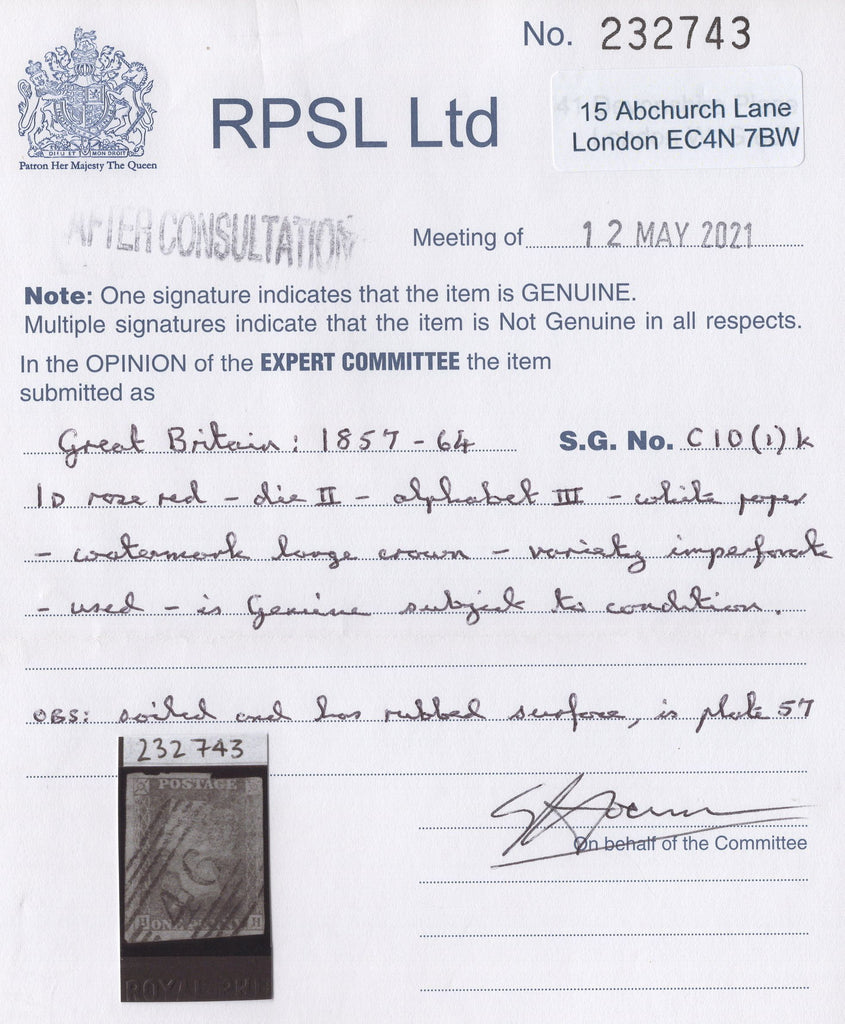 No. 232743
RPSL Ltd
15 Abchurch Lane
London EC4N 7BW
DIEU ET MON DROIT
Patron Her Majesty The Queen
AFTER CONSULTATION
Meeting of 12 MAY 2021
Note: One signature indicates that the item is GENUINE.
Multiple signatures indicate that the item is Not Genuine in all respects.
In the OPINION of the EXPERT COMMITTEE the item
submitted as
Great Britain: 1857-64 S.G. No. C10(1)k
1D rose red - die II - alphabet III - white paper
- watermark large crown - variety imperforate
- used - is Genuine subject to condition.
OBS: soiled and has rubbed surface, is plate 57
232743
POSTAGE
H ONE PENNY H
ROYAL PHI
On behalf of the Committee